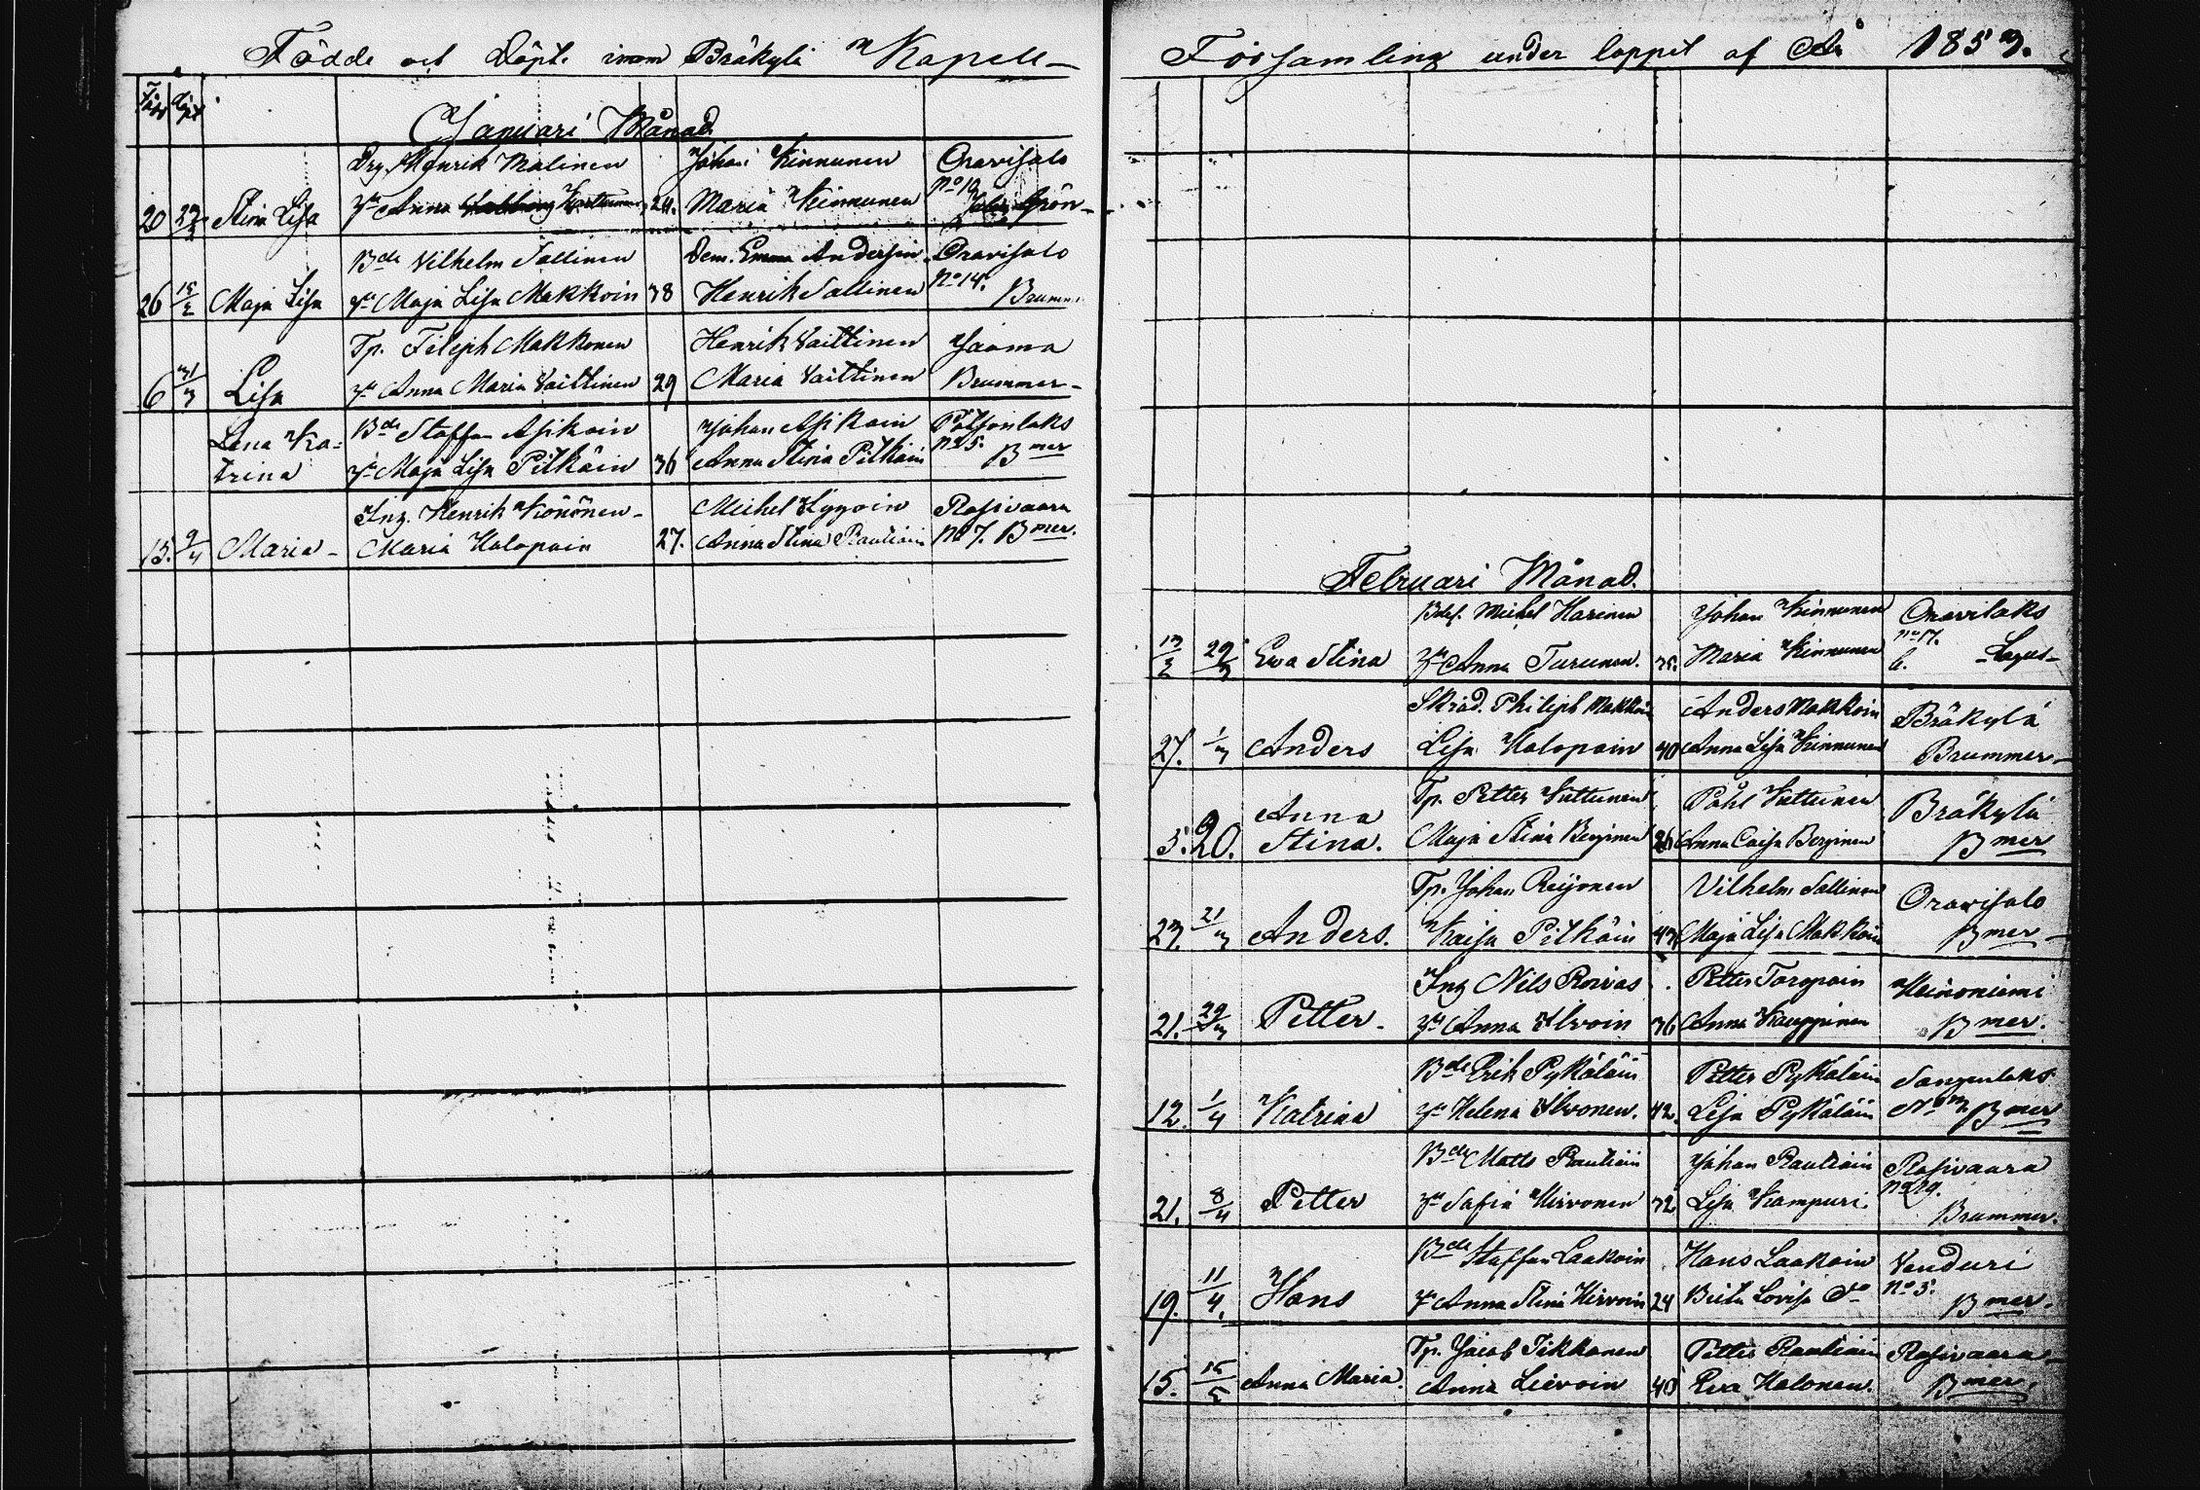 Födde och Döpte inom Bräkylä Kapell-
Född Döpt
Januari Månad
Henrik Malinen Johan Kinnunen Oravisalo
No 10
20 Stina Lisa Anna 24. Maria Kinnunen Grön-
Bde Vilhelm Sallinen Dem. Emma Andersin Oravisalo
26 15/2 Maja Lisa hu Maja Lisa Makkoin 38 Henrik Sallinen No 14. Brumm
Tp. Fileph Makkonen Henrik Vaittinen Jaama
6 31/3 Lisa hu Anna Maria Vaittinen 29 Maria Vaittinen Brummer-
Lena Ka= Bde Staffan Asikain Johan Asikain Pötsönlaks
trina hu Maja Lisa Pitkäin 36 Anna Stina Pitkäin No 5. Bmer
Inh. Henrik Könönen- Michel Hyyöin Rasivaara
13. 9/4 Maria- Maria Halopain 27. Anna Stina Rautiain No 7. Bmer.
Församling under loppet af År 1853.
Februari Månad.
Bdes. Michel Harinen Johan Kinnunen Oravilaks
No 17.
13/2 29/3 Ewa Stina hu Anna Turunen. 35. Maria Kinnunen 6. -Lagus-
Skräd. Philiph Makkoin Anders Makkoin Bräkylä
27. 1/3 Anders Lisa Halopain 40 Anna Lisa Kinnunen Brummer-
Tp. Petter Kuttunen Påhl Kuttunen Bräkylä
Anna
5. 20. Stina. Maja Stina Berginen 26 Anna Caisa Berginen Bmer
Tp. Johan Reijonen Vilhelm Sallinen Oravisalo
23. 21/3 Anders. Kaisa Pitkäin 43 Maja Lisa Makkoin Bmer-
Inh Nils Roivas Petter Toropain Heinoniemi
21. 29/3 Petter- hu Anna Ilvoin 36 Anna Kauppinen Bmer.
Bde Erik Pykäläin Petter Pykäläin
12. 1/4 Katrina hu Helena Ilvonen. 42. Lisa Pykäläin Bmer
Bde Matts Rautiain Johan Rautiain Rasivaara
21. 8/4 Petter hu Safia Hirvonen 32 Lisa Kampuri. Brummer.
Bde Staffan Laakoin Hans Laakoin Vanduri
19. 11/4. Hans hu Anna Stina Hirvoin 24 Brita Lovisa do No 5. Bmer.
Tp. Jacob Tikkanen Petter Rautiain Rasivaara-
15. 15/5 Anna Maria. Anna Lievoin 40 Halonen. Bmer.